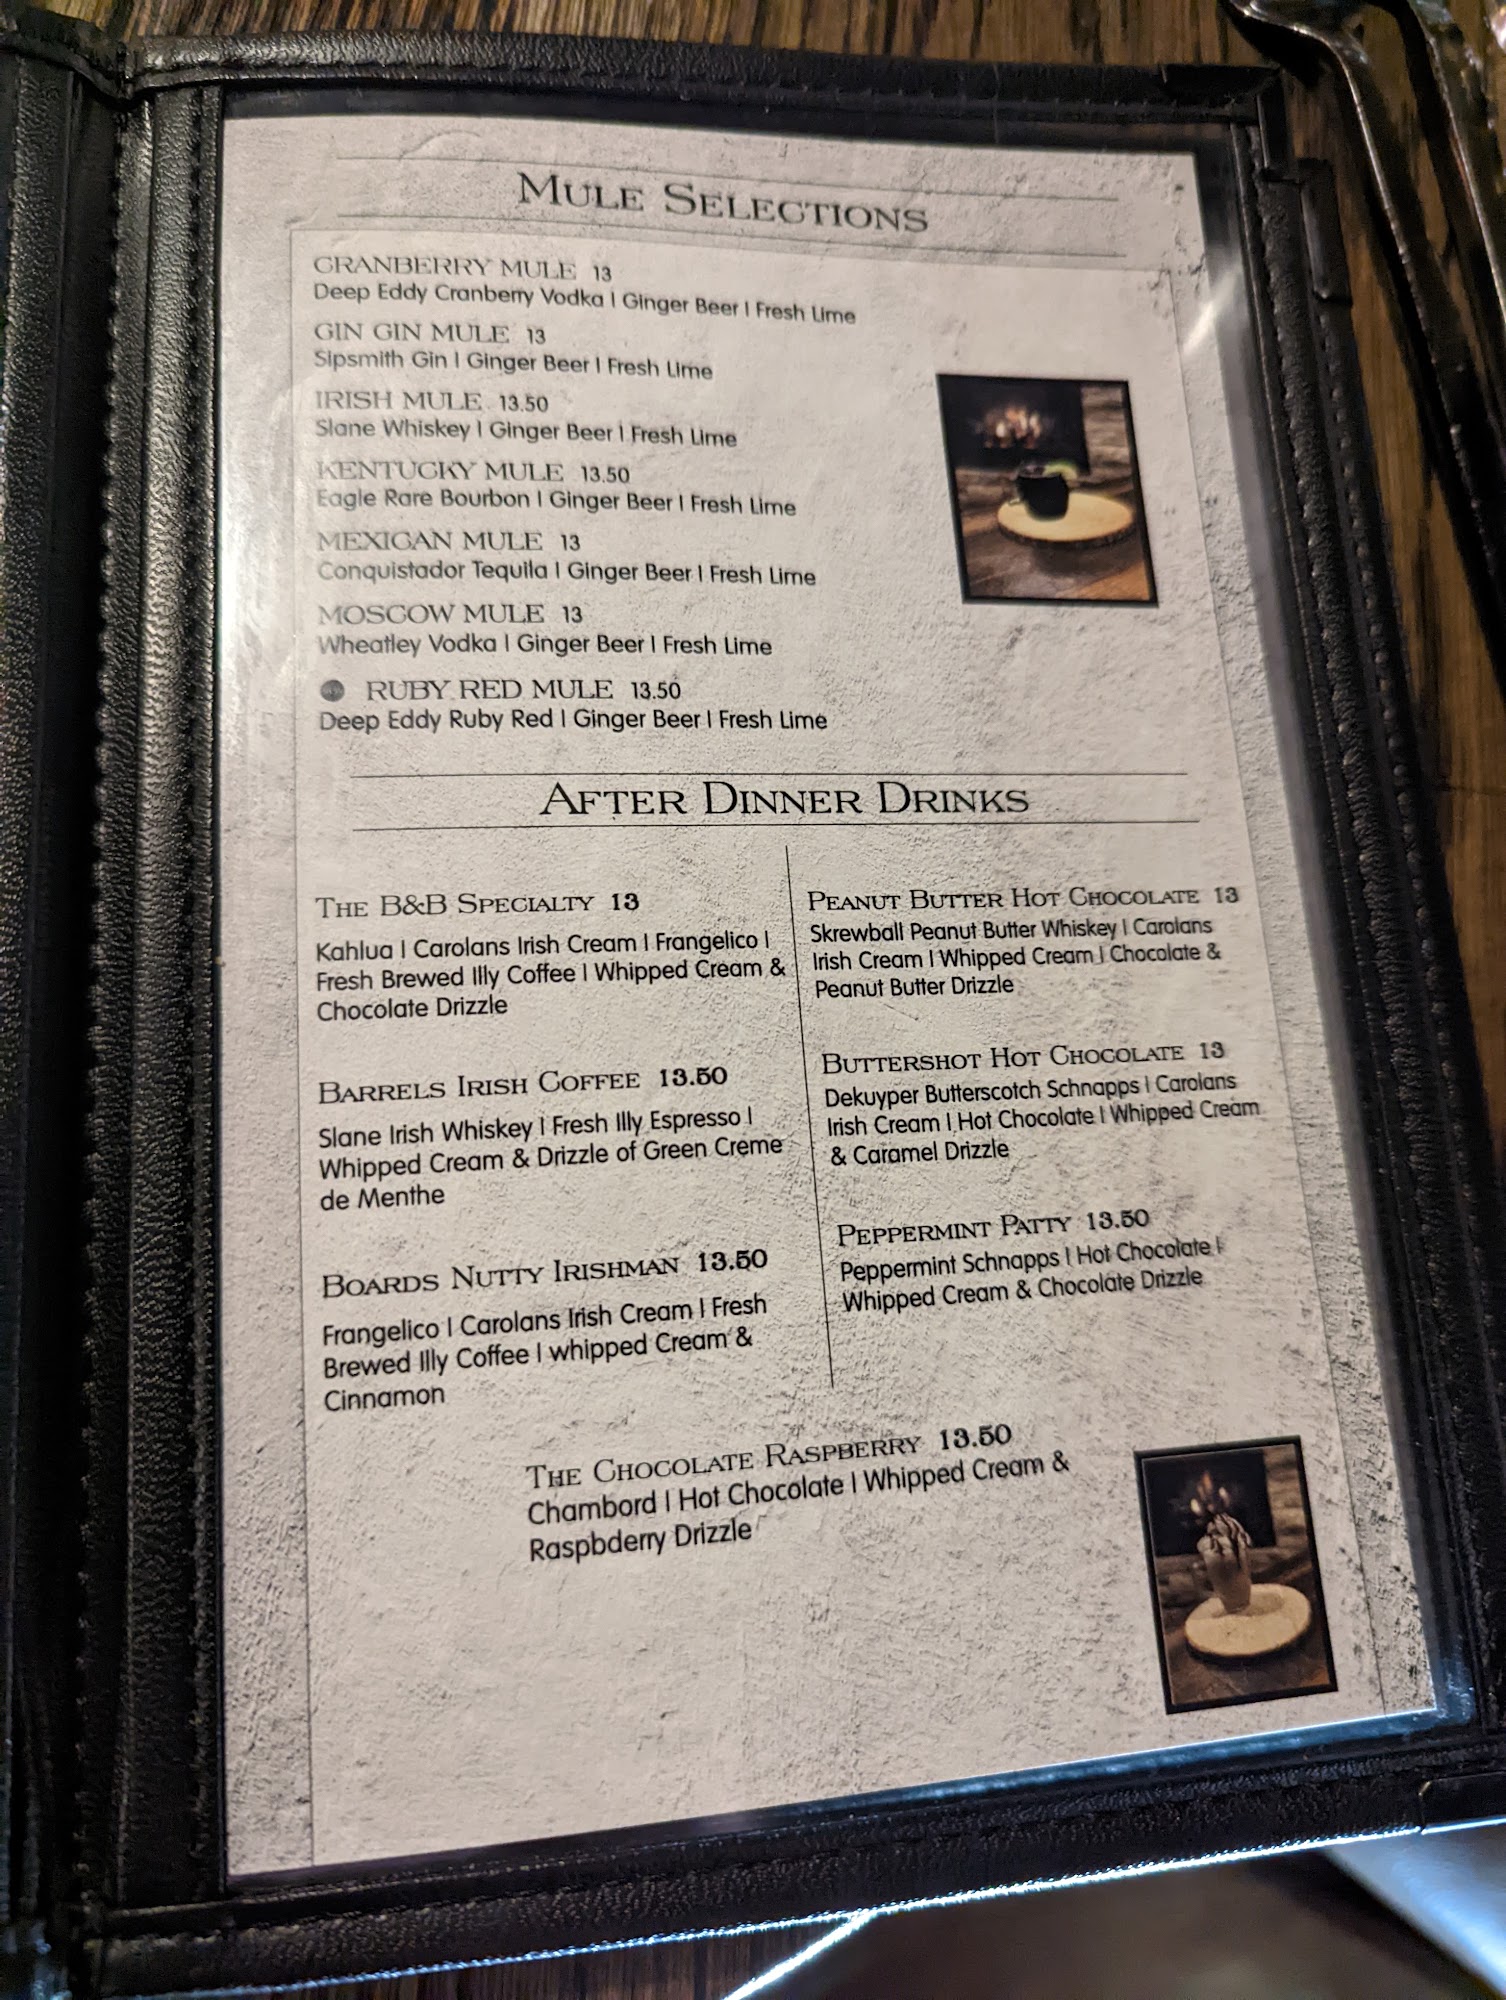 MULE SELECTIONS
CRANBERRY MULE 13
Deep Eddy Cranberry Vodka | Ginger Beer | Fresh Lime
GIN GIN MULE 13
Sipsmith Gin | Ginger Beer | Fresh Lime
IRISH MULE 13.50
Slane Whiskey | Ginger Beer | Fresh Lime
KENTUCKY MULE 13.50
Eagle Rare Bourbon | Ginger Beer | Fresh Lime
MEXICAN MULE 13
Conquistador Tequila | Ginger Beer | Fresh Lime
MOSCOW MULE 13
Wheatley Vodka | Ginger Beer | Fresh Lime
RUBY RED MULE 13.50
Deep Eddy Ruby Red | Ginger Beer | Fresh Lime
AFTER DINNER DRINKS
THE B&B SPECIALTY 13
Kahlua | Carolans Irish Cream | Frangelico |
Fresh Brewed Illy Coffee | Whipped Cream &
Chocolate Drizzle
BARRELS IRISH COFFEE 13.50
Slane Irish Whiskey | Fresh Illy Espresso |
Whipped Cream & Drizzle of Green Creme
de Menthe
BOARDS NUTTY IRISHMAN 13.50
Frangelico | Carolans Irish Cream | Fresh
Brewed Illy Coffee | whipped Cream &
Cinnamon
PEANUT BUTTER HOT CHOCOLATE 13
Skrewball Peanut Butter Whiskey | Carolans
Irish Cream | Whipped Cream | Chocolate &
Peanut Butter Drizzle
BUTTERSHOT HOT CHOCOLATE 13
Dekuyper Butterscotch Schnapps | Carolans
Irish Cream | Hot Chocolate | Whipped Cream
& Caramel Drizzle
PEPPERMINT PATTY 13.50
Peppermint Schnapps | Hot Chocolate |
Whipped Cream & Chocolate Drizzle
THE CHOCOLATE RASPBERRY 13.50
Chambord | Hot Chocolate | Whipped Cream &
Raspbderry Drizzle